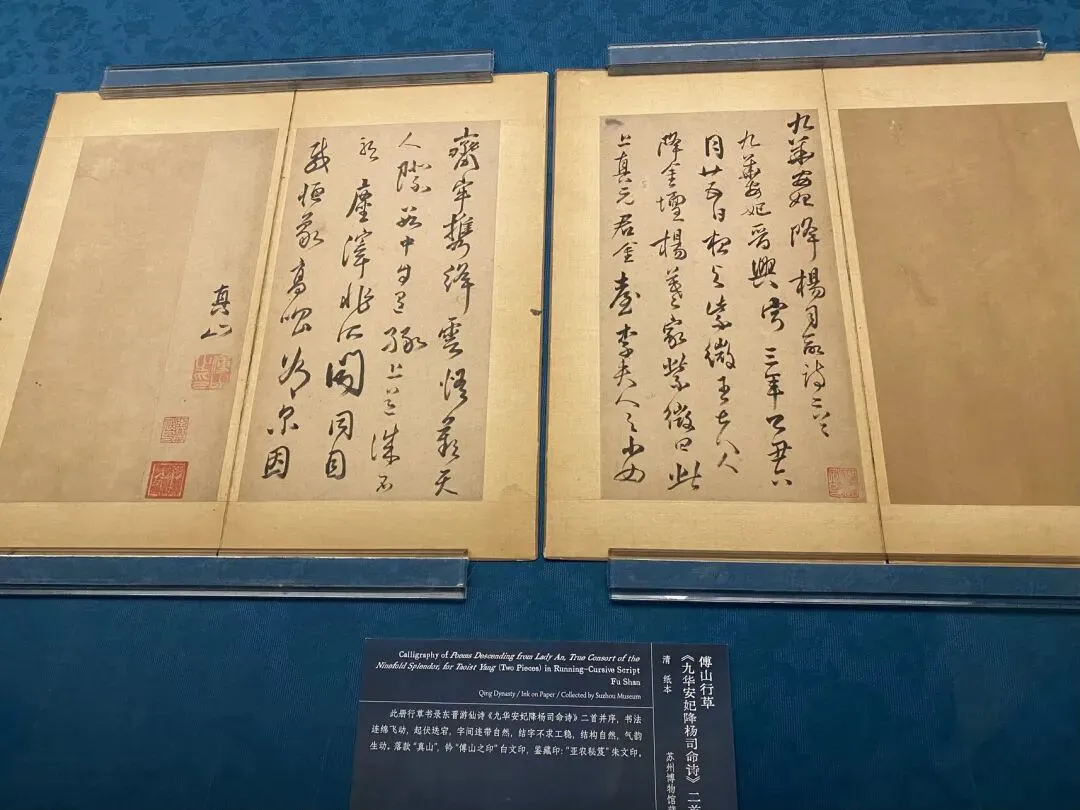 九華安妃降楊司命詩二首
九華安妃晉興寧三年乙丑六
月廿五日夜与紫微王夫人
降金壇楊羲家紫微曰此
上真元君金臺李夫人之少女
齊牢携絳雲悟歎天
人際數中自有緣上道誠不
邪塵滓非所聞同目
咸恒象高唱为尔因
真山
傅山行草
《九华安妃降杨司命诗》二首
清 纸本
苏州博物馆藏
Calligraphy of Poems Descending from Lady An, True Consort of the
Ninefold Splendor, for Taoist Yang (Two Pieces) in Running-Cursive Script
Fu Shan
Qing Dynasty / Ink on Paper / Collected by Suzhou Museum
此册行草书录东晋游仙诗《九华安妃降杨司命诗》二首并序,书法
连绵飞动,起伏迭宕,字间连带自然,结字不求工稳,结构自然,气韵
生动。落款“真山”,钤“傅山之印”白文印,鉴藏印:“亚农秘笈”朱文印。